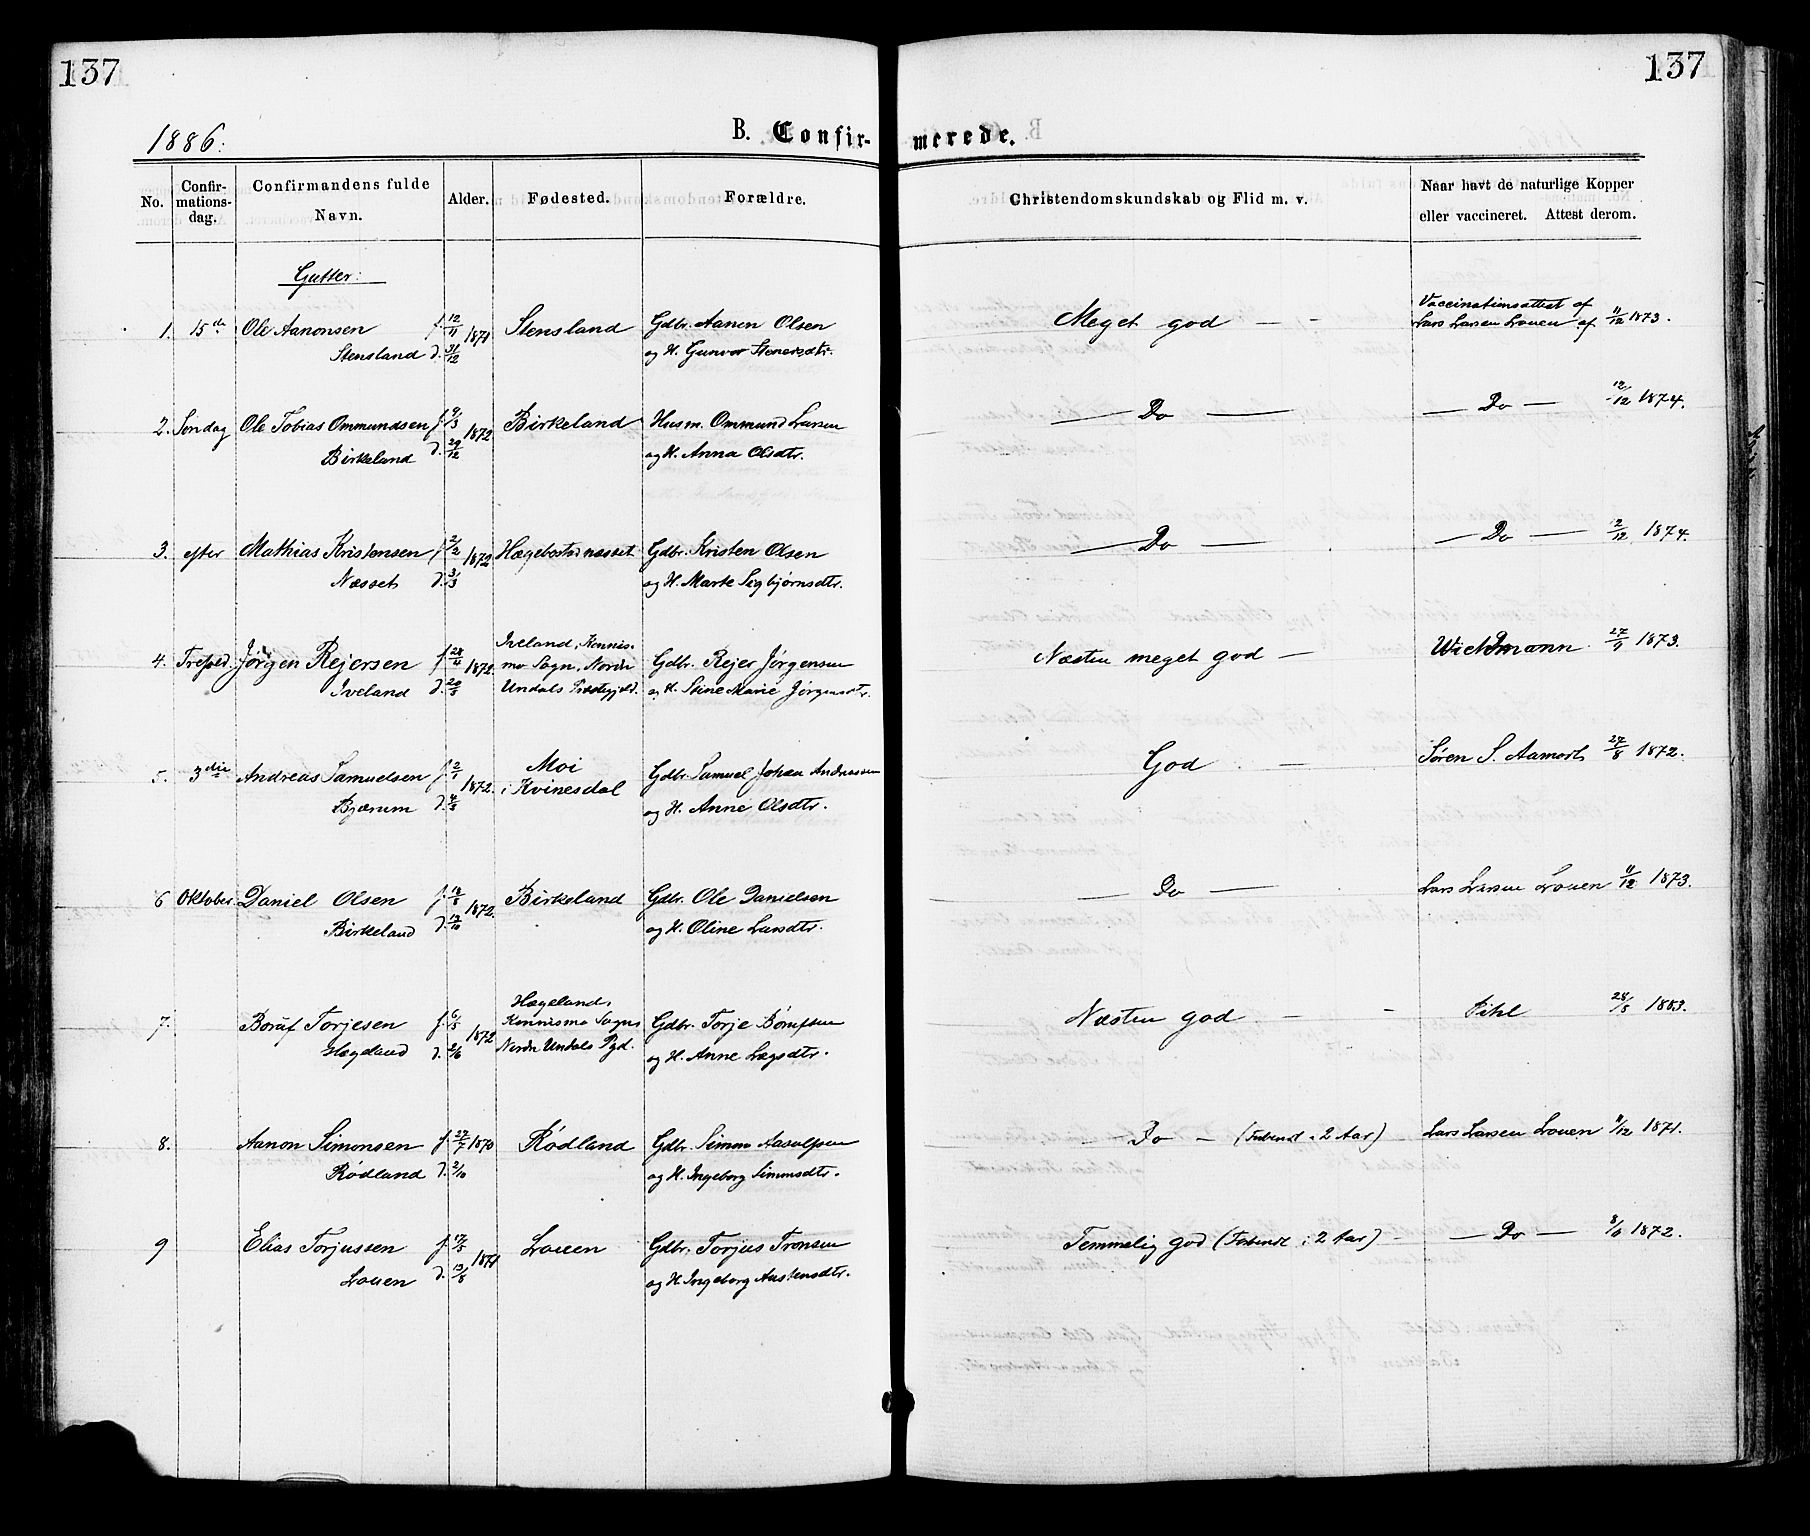 137
137
1886:
B. Confir-
merede.
No.
Confir-
mations-
dag.
Confirmandens fulde
Navn.
Alder.
Fødested.
Forældre.
Christendomskundskab og Flid m. v.
Naar havt de naturlige Kopper
eller vaccineret. Attest derom.
Gutter:
1. 15de Ole Aanonsen f. 12/11 1871 Stensland Gdbr. Aanen Olsen Meget god — - Vaccinationsattest af
Stensland d. 31/12 og H. Gunvor Stenersdtr. Lars Larsen Louen af 11/12 1873.
2. Søndag Ole Tobias Ommundsen f. 9/3 1872 Birkeland Husm. Ommund Larsen — Do — — Do — 12/12 1874.
Birkeland d. 29/12 og H. Anna Olsdtr.
3. efter Mathias Kristensen f. 2/2 1872 Hægebostadnæsset Gdbr. Kristen Olsen — Do — — Do — 2/12 1874.
Næsset d. 3/3 og H. Marte Sigbjørnsdtr.
4. Trefold. Jørgen Rejersen f. 28/4 1872. Iveland, Konnis-
mo Sogn, Nordre Gdbr. Rejer Jørgensen Næsten meget god — Wichmann 27/9 1873.
Iveland d. 20/5 Undals Præstegjeld. og H. Stine Marie Jørgensdtr.
5. 3die Andreas Samuelsen f. 2/1 1872. Moi Gdbr. Samuel Johan Andreassen God — Søren S. Aamodt 27/8 1872.
Bjærum d. 4/3 i Kvinesdal og H. Anne Olsdtr.
6 Oktober. Daniel Olsen f. 18/8 1872. Birkeland Gdbr. Ole Danielsen — Do — Lars Larsen Louen 11/12 1873.
Birkeland d. 13/10 og H. Oline Larsdtr.
7. Boruf Torjesen f. 6/5 1872 Hægeland,
Konnismo Sogn, Gdbr. Torje Børufsen Næsten god — - Pihl 28/8 1883.
Hægeland d. 2/6 Nordre Undals Pgd. og H. Anne Lægsdtr.
8. Aanon Simonsen f. 27/7 1870 Rødland Gdbr. Simon Aasulfsen - Do - (Forberedt i 2 Aar) - Lars Larsen Louen 11/12 1871.
Rødland d. 2/10 og H. Ingeborg Simonsdtr.
9 Elias Torjussen f. 17/5 1871 Louen Gdbr. Torjus Tronsen Temmelig god (Forberedt i 2 Aar) - — Do — 8/10 1872.
Louen d. 13/8 og H. Ingeborg Austensdtr.